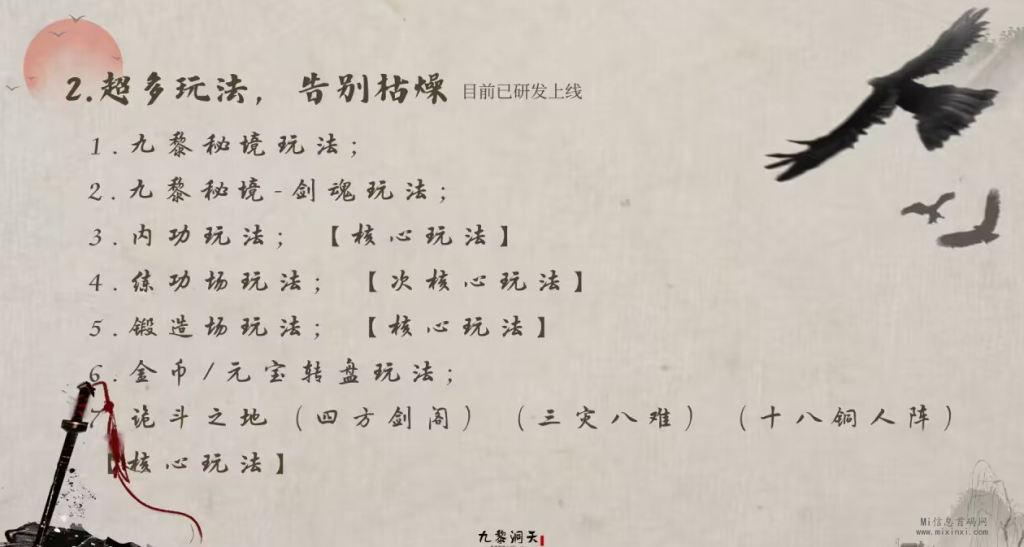 2.超多玩法，告别枯燥 目前已研发上线
1.九黎秘境玩法；
2.九黎秘境-剑魂玩法；
3.内功玩法； 【核心玩法】
4.练功场玩法； 【次核心玩法】
5.锻造场玩法； 【核心玩法】
6.金币/元宝转盘玩法；
7 诡斗之地（四方剑阁）（三灾八难）（十八铜人阵）
【核心玩法】
九黎洞天
Mi信息首码网
www.mixinxi.com